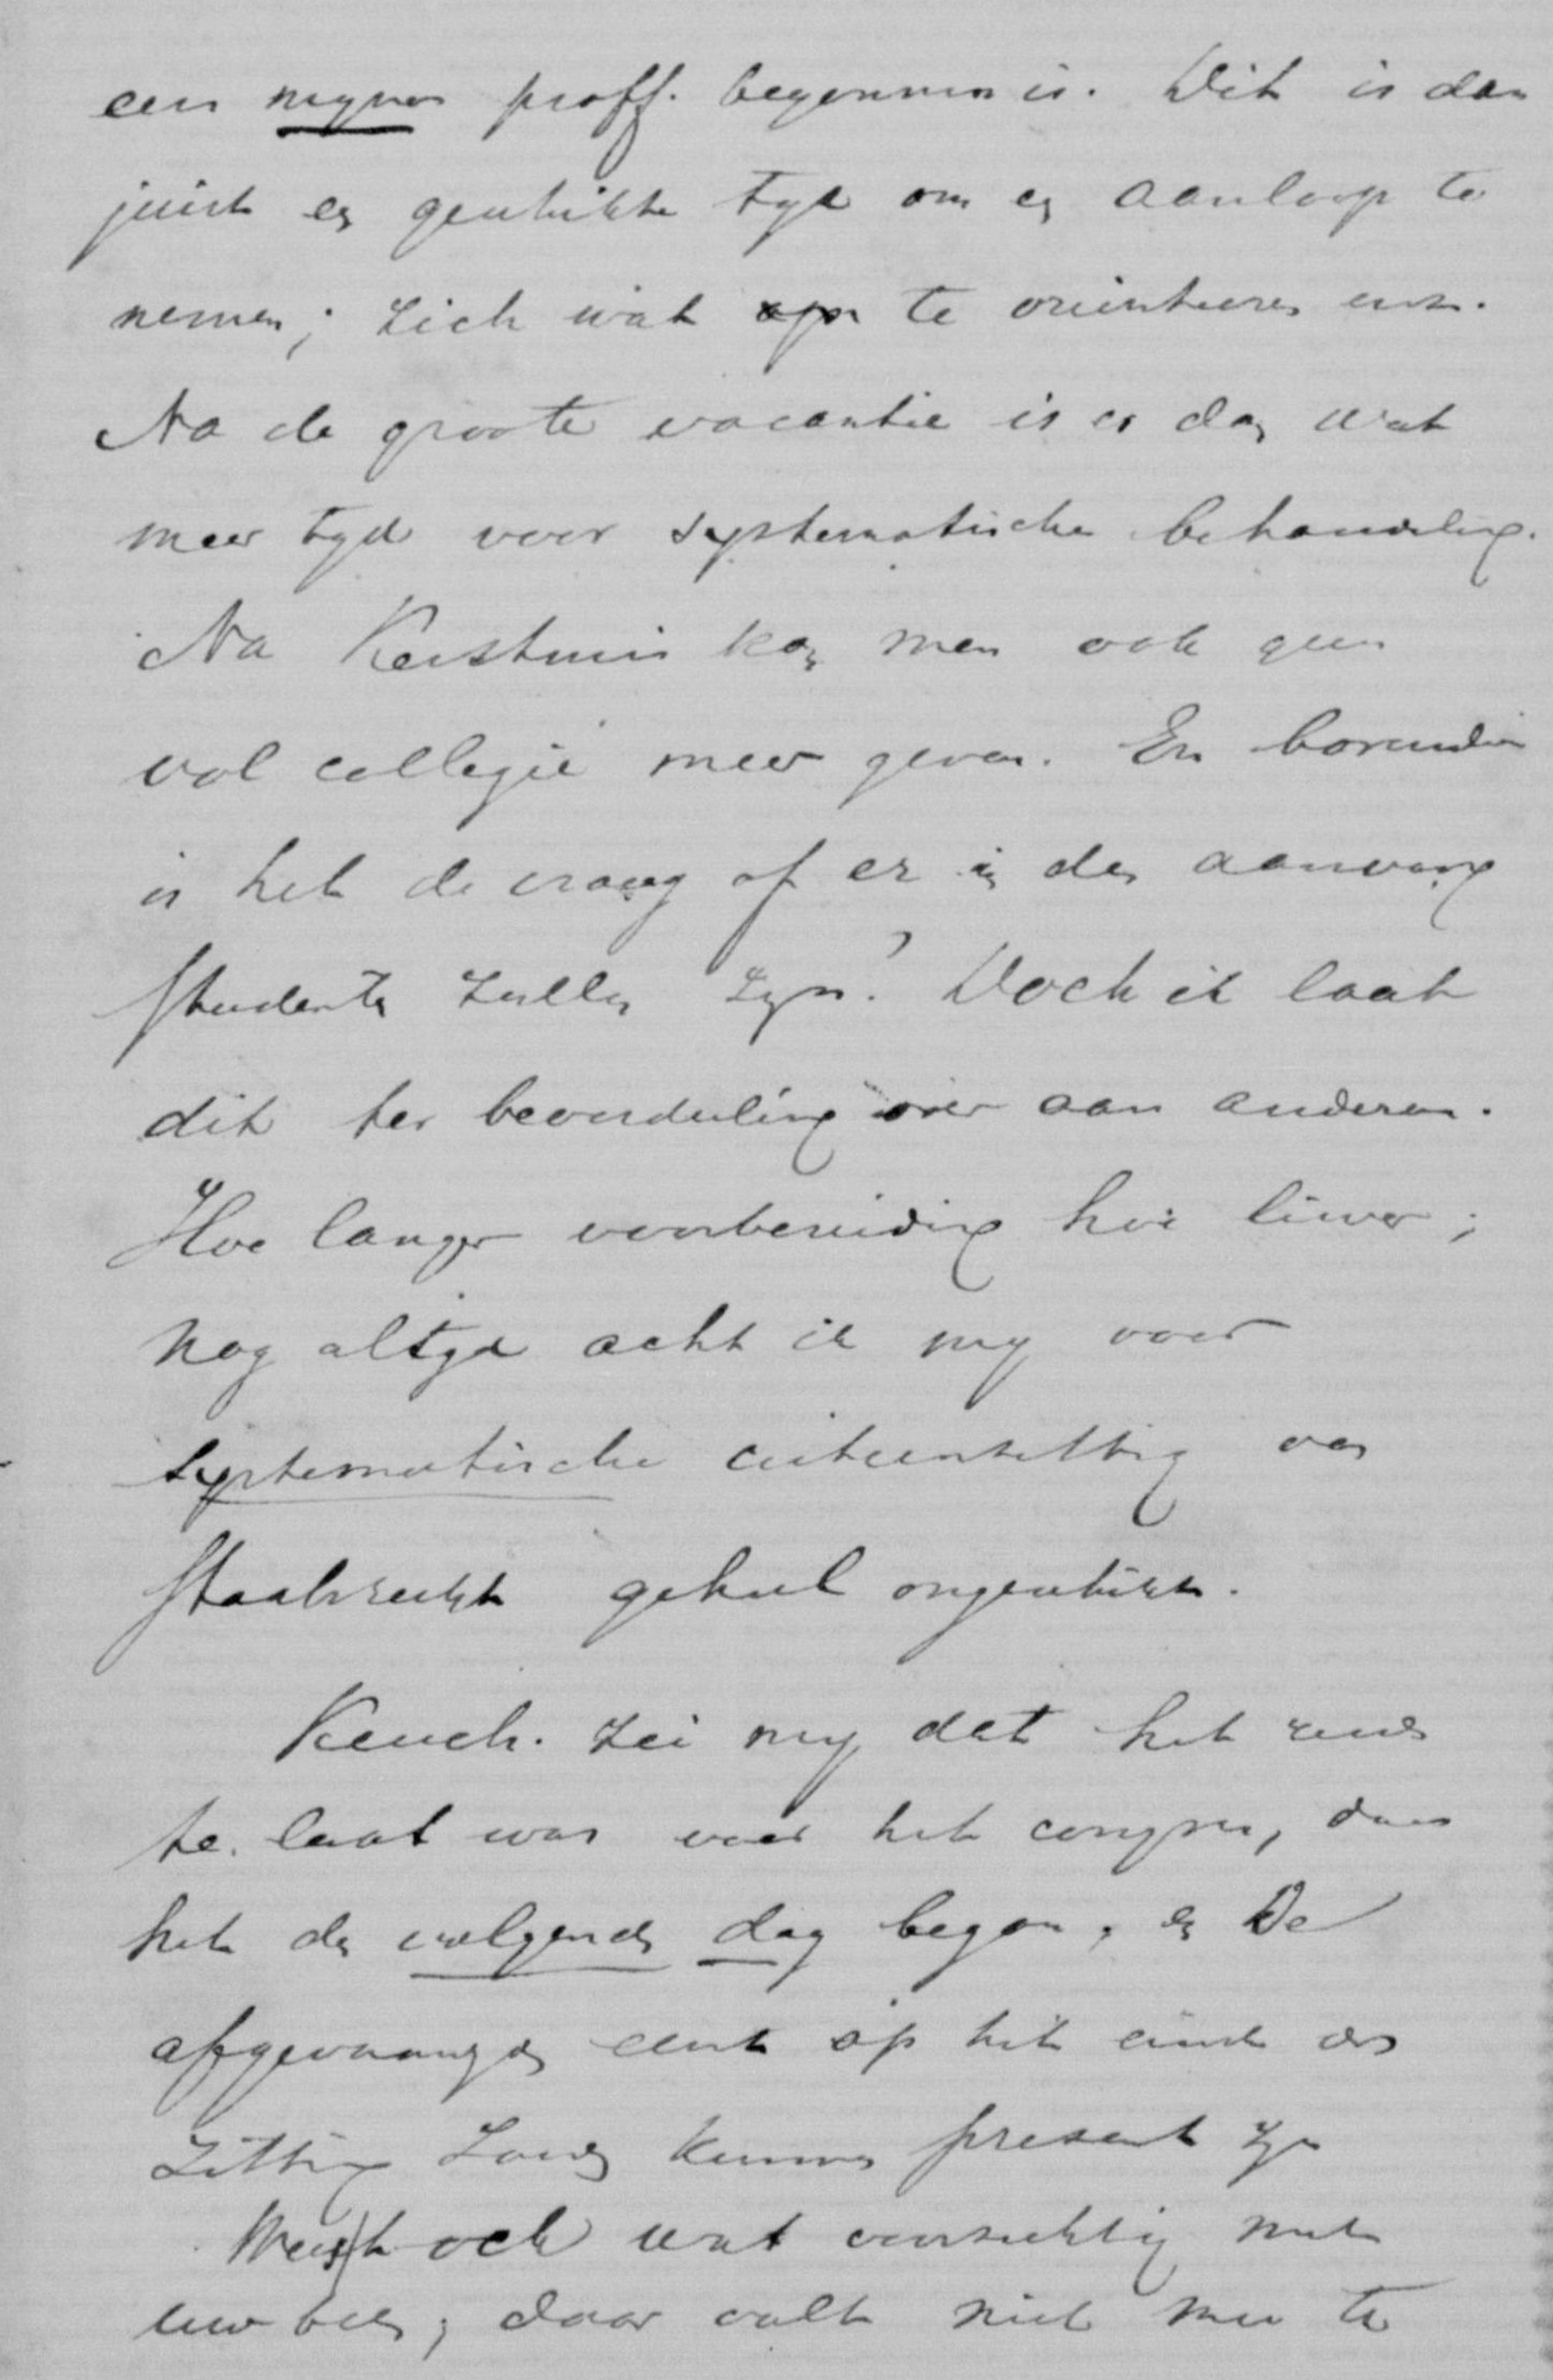 een proff. begonnen is. Dit is dan
juist en geschikte tyd om en aanloop te
nemen; zich wat te orienteeren enz.
Na de groote vacantie is er dan wat
meer tyd voor systematische behandeling.
Na Kerstmis kan men ook geen
vol collegie meer geven. En bovendien
is het de vraag of er in den aanvang
studenten zullen zyn? Doch ik laat
dit ter beoordeeling over aan anderen.
Hoe langer voorbereiding hoe liever;
nog altyd acht ik my voor
systematische uiteenzetting van
staatsrecht geheel ongeschikt.
Keuch. zei my dat het reeds
te laat was voor het congres, daar
het den volgenden dag begon, en De
afgevaardigden eerst op het einde der
zitting zouden kunnen present zyn
Weest och wat voorzichtig met
uw ; daar valt niet mee te